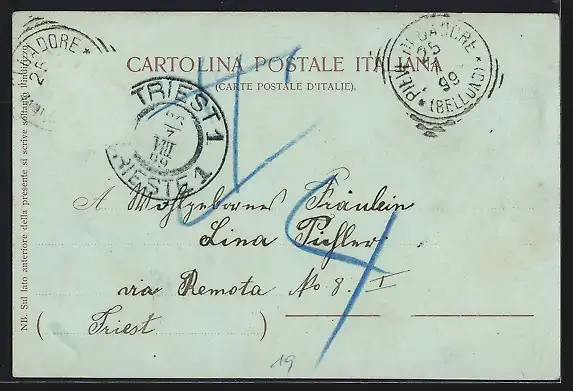 CARTOLINA POSTALE ITALIANA
(CARTE POSTALE D'ITALIE).
NB. Sul lato anteriore della presente si scrive soltanto l'indirizzo
ADORE
25
PIEVE DI CADORE
25
99
(BELLUNO)
TRIESTE 1
7
VIII
TRIESTE 1
A Wohlgebornes Fräulein
Lina Pichler
via Remota No 8. I
(Triest)
T
4
19